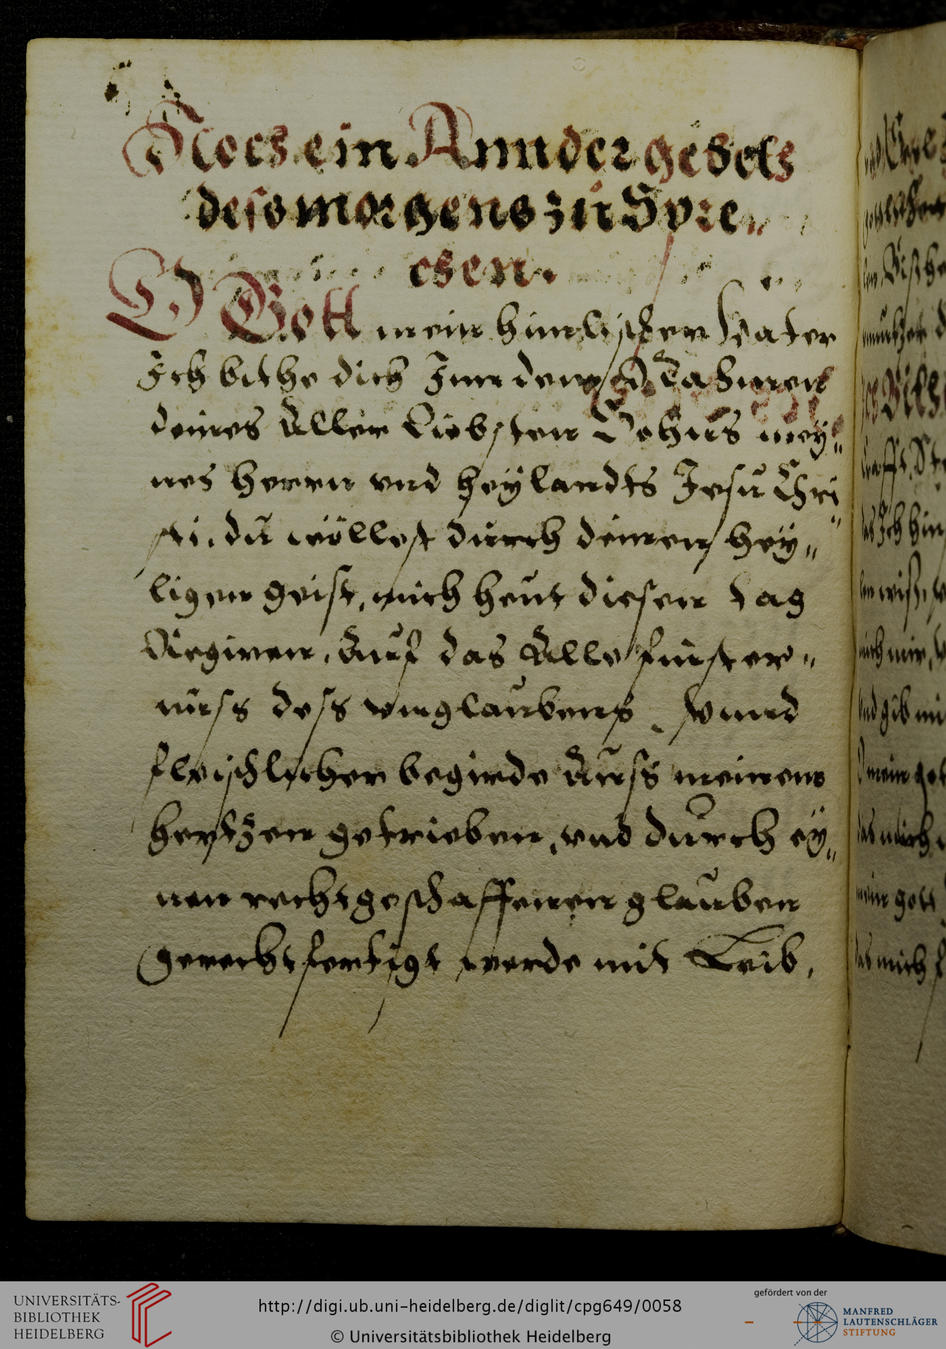 Noch ein Annder gebets
dess morgens zu Spre„
chen.
O Gott mein himlischer Vater
Ich bithe dich Inn dem Nahmen
deines Aller Liebsten Sohns mey„
nes herrn vnd heÿlandts Jesu Chri„
sti, du wöllest durch deinen heÿ„
ligen geist, mich heut diesen tag
Regiren, Auf das Alle finster„
nuss dess vnglaubens vnnd
fleischlicher begirde Auss meinem
hertzen getrieben, vnd durch eÿ„
nen rechtgeschaffenen glauben
gerechtfertigt werde mit Leib,
UNIVERSITÄTS-
BIBLIOTHEK
HEIDELBERG
http://digi.ub.uni-heidelberg.de/diglit/cpg649/0058
© Universitätsbibliothek Heidelberg
gefördert von der
MANFRED
LAUTENSCHLÄGER
STIFTUNG